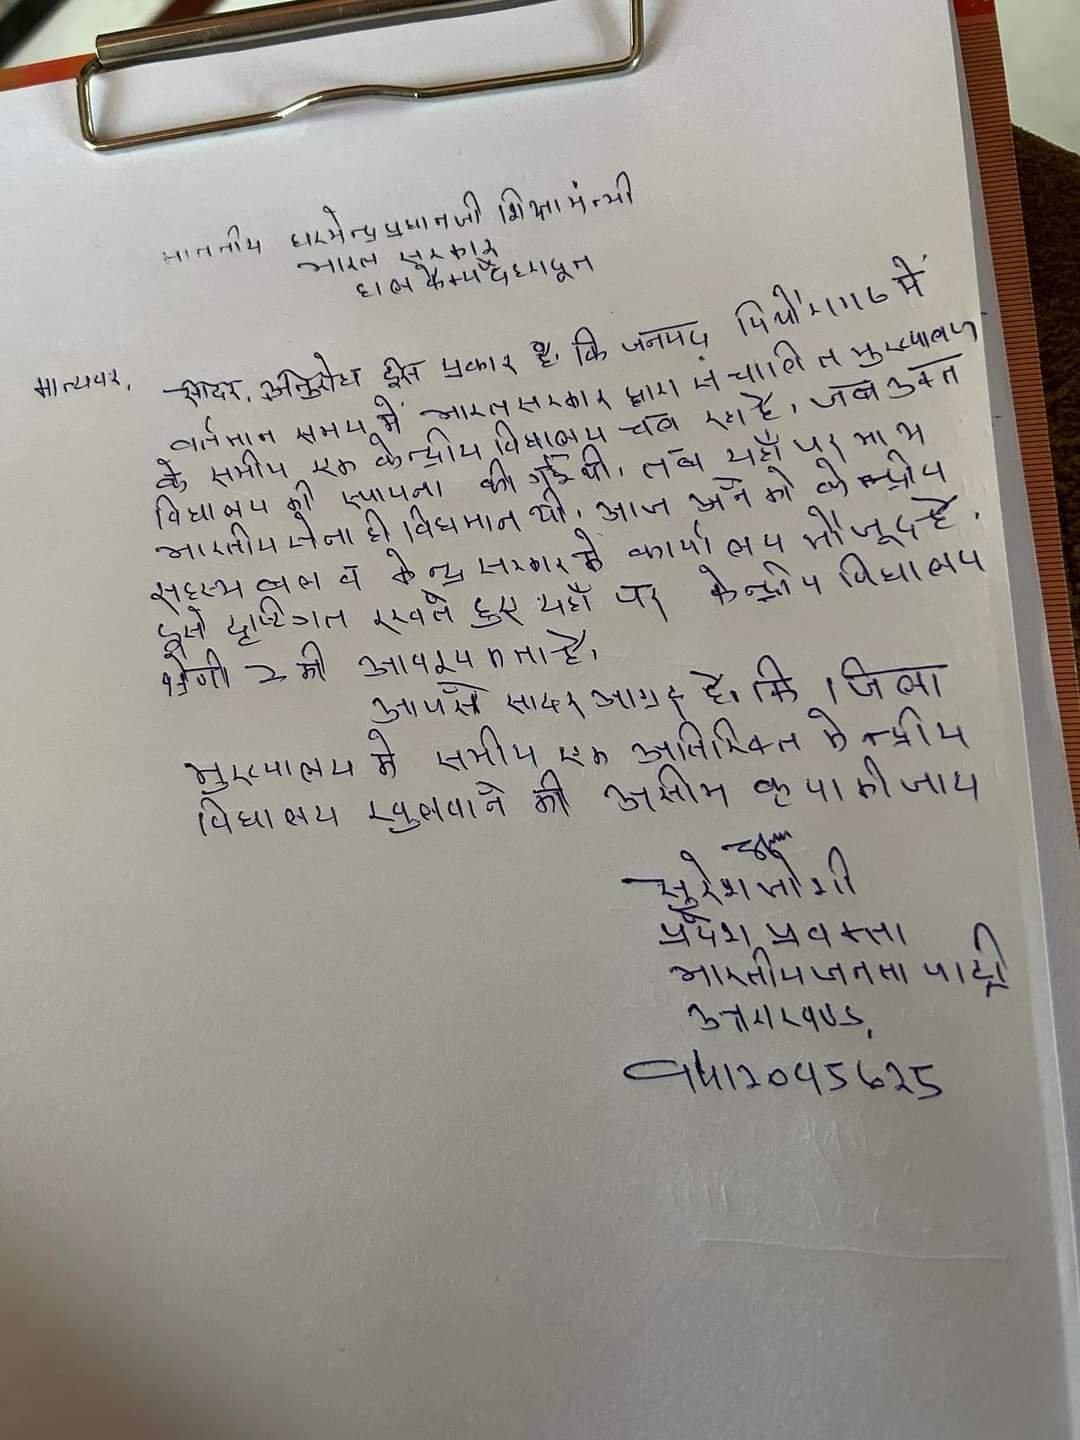 माननीय धरमेन्द्र प्रधान जी शिक्षा मंन्त्री
भारत सरकार
हाल कैम्प देहरादून
मान्यवर,
सादर, अनुरोध इस प्रकार है, कि जनपद पिथौरागढ में
वर्तमान समय में भारत सरकार द्वारा संचालित मुख्यालय
के समीप एक केन्द्रीय विद्यालय चल रहा है, जब उक्त
विद्यालय की स्थापना की गई थी, तब यहाँ पर मात्र
भारतीय सेना ही विद्यमान थी, आज अनेको केन्द्रीय
सहस्त्र बल व केन्द्र सरकार के कार्यालय मौजूद है,
इसे दृष्टिगत रखते हुए यहाँ पर केन्द्रीय विद्यालय
श्रेणी 2 की आवश्यकता है,
आपसे सादर आग्रह है, कि जिला
मुख्यालय के समीप एक अतिरिक्त केन्द्रीय
विद्यालय खुलवाने की असीम कृपा की जाय
सुरेश जोशी
प्रदेश प्रवक्ता
भारतीय जनता पार्टी
उत्तराखण्ड,
9412045625